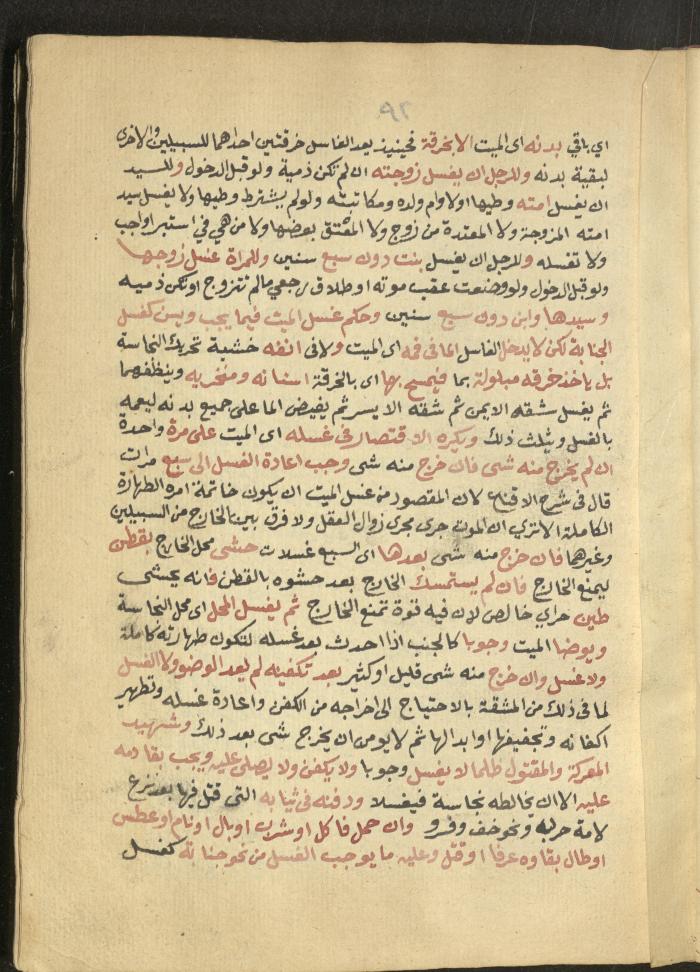 ٩٢
اي باقي بدنه اى الميت الا بخرقة فحينيذ يعد الغاسل خرقتين احداهما للسبيلين والاخرى
لبقية بدنه وللرجل ان يغسل زوجته ان لم تكن ذمية ولو قبل الدخول وللسيد
ان يغسل امته وطيها اولا وام ولده ومكاتبته ولو لم يشترط وطيها ولا يغسل سيد
امته المزوجة ولا المعتدة من زوج ولا المعتق بعضها ولا من هي في استبرا واجب
ولا تغسله وللرجل ان يغسل بنت دون سبع سنين وللمراة غسل زوجها
ولو قبل الدخول ولو وضعت عقب موته او طلاق رجعي مالم تتزوج او تكن ذميه
وسيدها وابن دون سبع سنين وحكم غسل الميت فيما يجب ويسن كغسل
الجنابة لكن لا يدخل الغاسل الما في فمه اى الميت ولا في انفه خشية تحريك النجاسة
بل ياخذ خرقه مبلولة بما فيمسح بها اى بالخرقة اسنانه ومنخريه وينظفهما
ثم يغسل شقه الايمن ثم شقه الايسر ثم يفيض الما على جميع بدنه ليعمه
بالغسل ويثلث ذلك ويكره الاقتصار في غسله اى الميت على مرة واحدة
ان لم يخرج منه شى فان خرج منه شى وجب اعادة الغسل الى سبع مرات
قال في شرح الاقناع لان المقصود من غسل الميت ان يكون خاتمة امره الطهارة
الكاملة الا ترى ان الموت جرى مجرى زوال العقل ولا فرق بين الخارج من السبيلين
وغيرهما فان خرج منه شى بعدها اى السبع غسلات حشى محل الخارج بقطن
ليمنع الخارج فان لم يستمسك الخارج بعد حشوه بالقطن فانه يحشى
طين حراي خالص لان فيه قوة تمنع الخارج ثم يغسل المحل اى محل النجاسة
ويوضا الميت وجوبا كالجنب اذا احدث بعد غسله لتكون طهارته كاملة
ولا غسل وان خرج منه شى قليل او كثير بعد تكفينه لم يعد الوضو ولا الغسل
لما في ذلك من المشقة بالاحتياج الى اخراجه من الكفن واعادة غسله وتطهير
اكفانه وتجفيفها او ابدالها ثم لا يومن ان يخرج شى بعد ذلك وشهيد
المعركة والمقتول ظلما لا يغسل وجوبا ولا يكفن ولا يصلى عليه ويجب بقا دمه
عليه الا ان يخالطه نجاسة فيغسلا ودفنه في ثيابه التى قتل فيها بعد نزع
لامة حربه ونحو خف وفرو وان حمل فاكل او شرب او بال او نام او عطس
او طال بقاوه عرفا او قتل وعليه ما يوجب الغسل من نحو جنابة كغسل